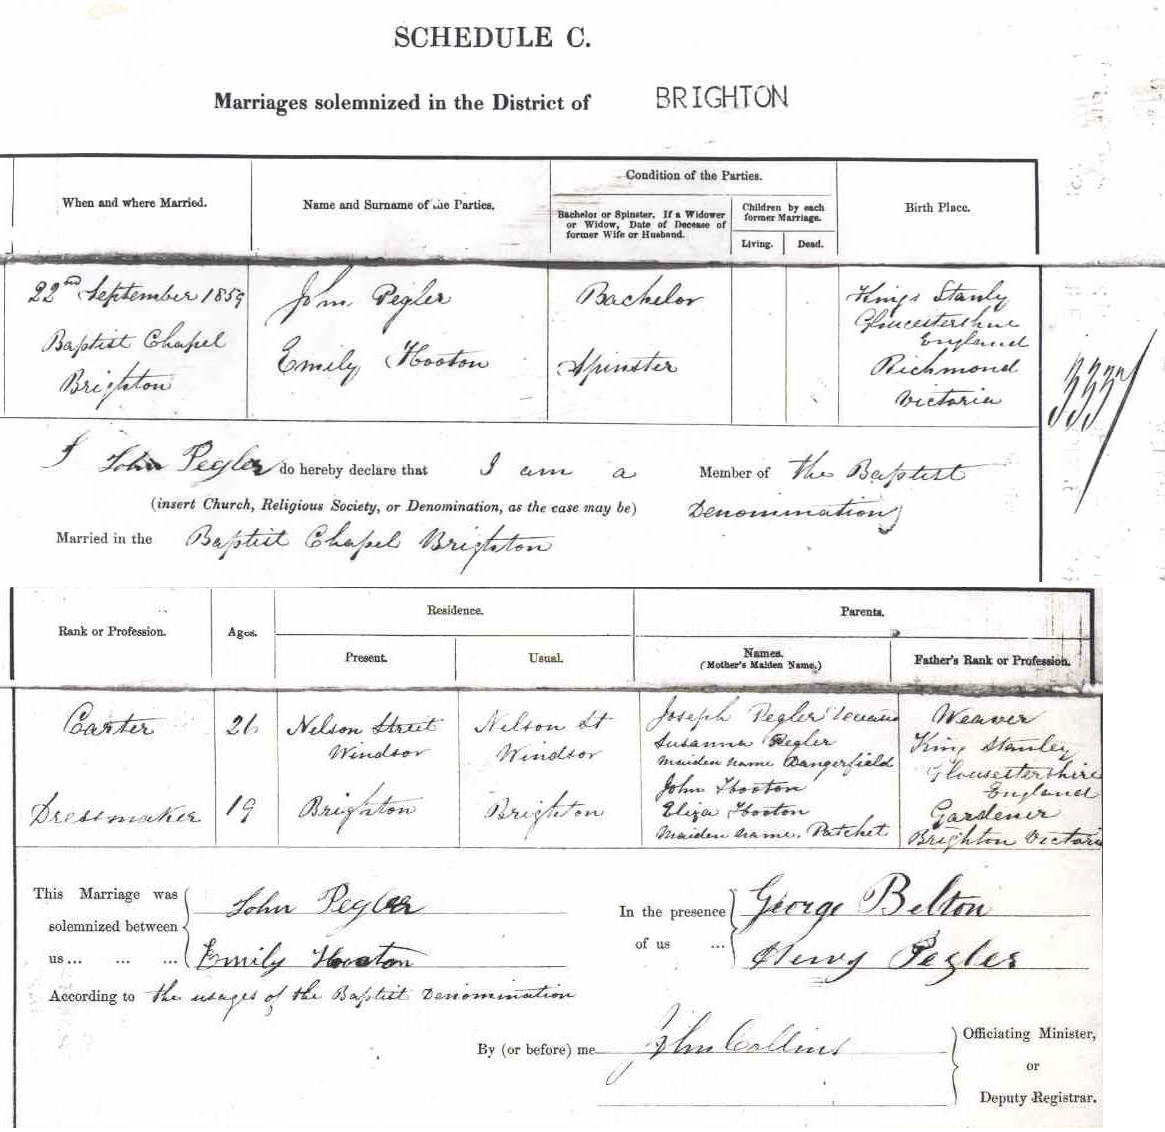 SCHEDULE C.
Marriages solemnized in the District of BRIGHTON
When and where Married.
Name and Surname of the Parties.
Condition of the Parties.
Bachelor or Spinster. If a Widower
or Widow, Date of Decease of
former Wife or Husband.
Children by each
former Marriage.
Living.
Dead.
Birth Place.
22nd September 1859
Baptist Chapel
Brighton
John Pegler
Emily Hooton
Bachelor
Spinster
Kings Stanly
Gloucestershire
England
Richmond
Victoria
333
I John Pegler do hereby declare that I am a Member of the Baptist
(insert Church, Religious Society, or Denomination, as the case may be) Denomination
Married in the Baptist Chapel Brighton
Rank or Profession.
Ages.
Residence.
Present.
Usual.
Parents.
Names.
(Mother's Maiden Name.)
Father's Rank or Profession.
Carter
26
Nelson Street
Windsor
Nelson St
Windsor
Joseph Pegler
Susanna Pegler
maiden name Dangerfield
Weaver
King Stanley
Gloucestershire
England
Dressmaker
19
Brighton
Brighton
John Hooton
Eliza Hooton
Maiden name. Patchet
Gardener
Brighton Victoria
This Marriage was
solemnized between
us ... ... ...
John Pegler
Emily Hooton
In the presence
of us ...
George Belton
Henry Pegler
According to the usages of the Baptist Denomination
By (or before) me John Collins
Officiating Minister,
or
Deputy Registrar.